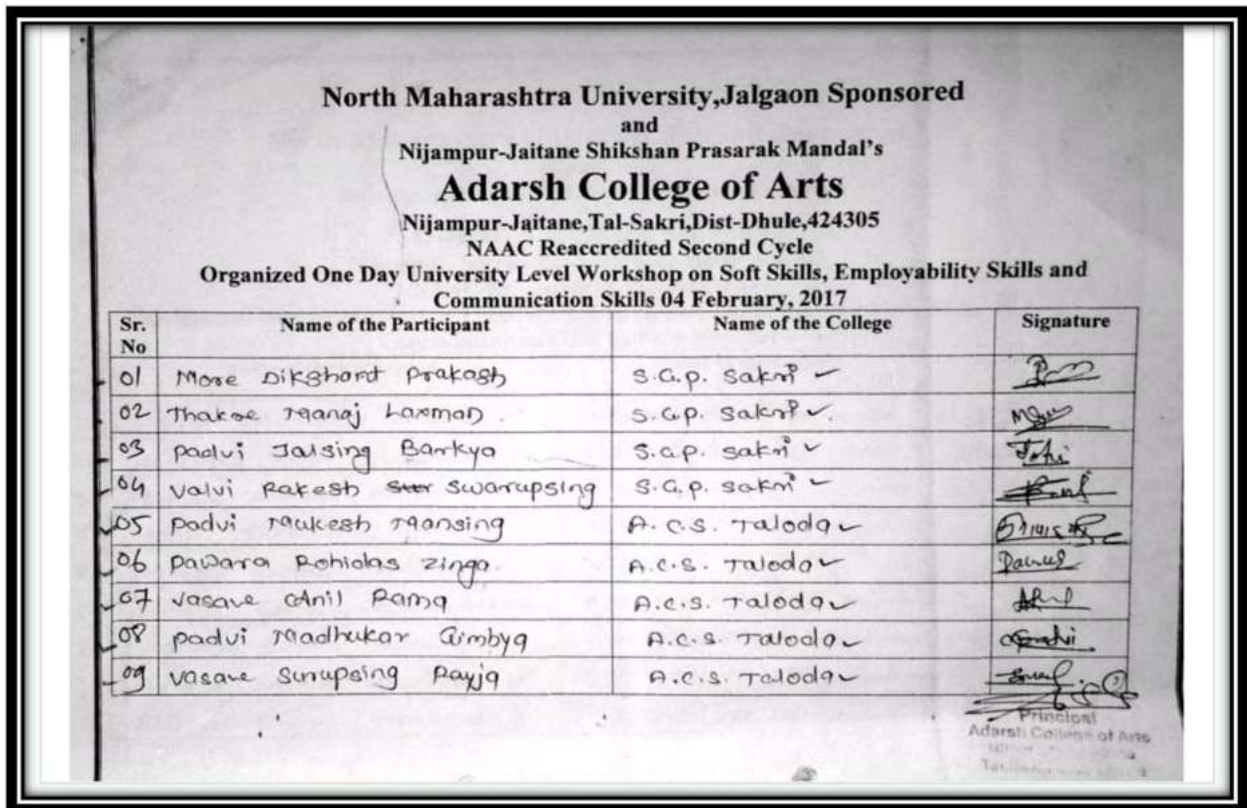 North Maharashtra University,Jalgaon Sponsored
and
Nijampur-Jaitane Shikshan Prasarak Mandal's
Adarsh College of Arts
Nijampur-Jaitane,Tal-Sakri,Dist-Dhule,424305
NAAC Reaccredited Second Cycle
Organized One Day University Level Workshop on Soft Skills, Employability Skills and
Communication Skills 04 February, 2017
Sr. No Name of the Participant Name of the College Signature
01 More Dikshant Prakash S.G.P. Sakri
02 Thakre Manoj Laxman. S.G.P. Sakri
03 Padvi Jalsing Barkya S.G.P. Sakri
04 Valvi Rakesh Swarupsing S.G.P. Sakri
05 Padvi Mukesh Mansing A.C.S. Taloda
06 Pawara Rohidas Zinga. A.C.S. Taloda
07 Vasave Anil Rama A.C.S. Taloda
08 Padvi Madhukar Gimbya A.C.S. Taloda
09 Vasave Surupsing Rayja A.C.S. Taloda
Principal
Adarsh College of Arts